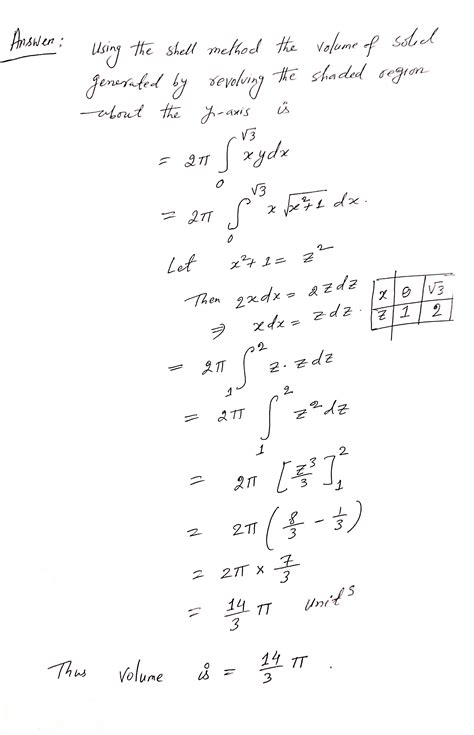 Answer: Using the shell method the volume of solid
generated by revolving the shaded region
about the y-axis is
= 2π ∫₀^√3 xydx
= 2π ∫₀^√3 x √(x²+1) dx.
Let x²+1 = z²
Then 2xdx = 2zdz
⇒ xdx = zdz.
x 0 √3
z 1 2
= 2π ∫₁² z·zdz
= 2π ∫₁² z²dz
= 2π [z³/3]₁²
= 2π (8/3 - 1/3)
= 2π × 7/3
= 14/3 π units
Thus volume is = 14/3 π.